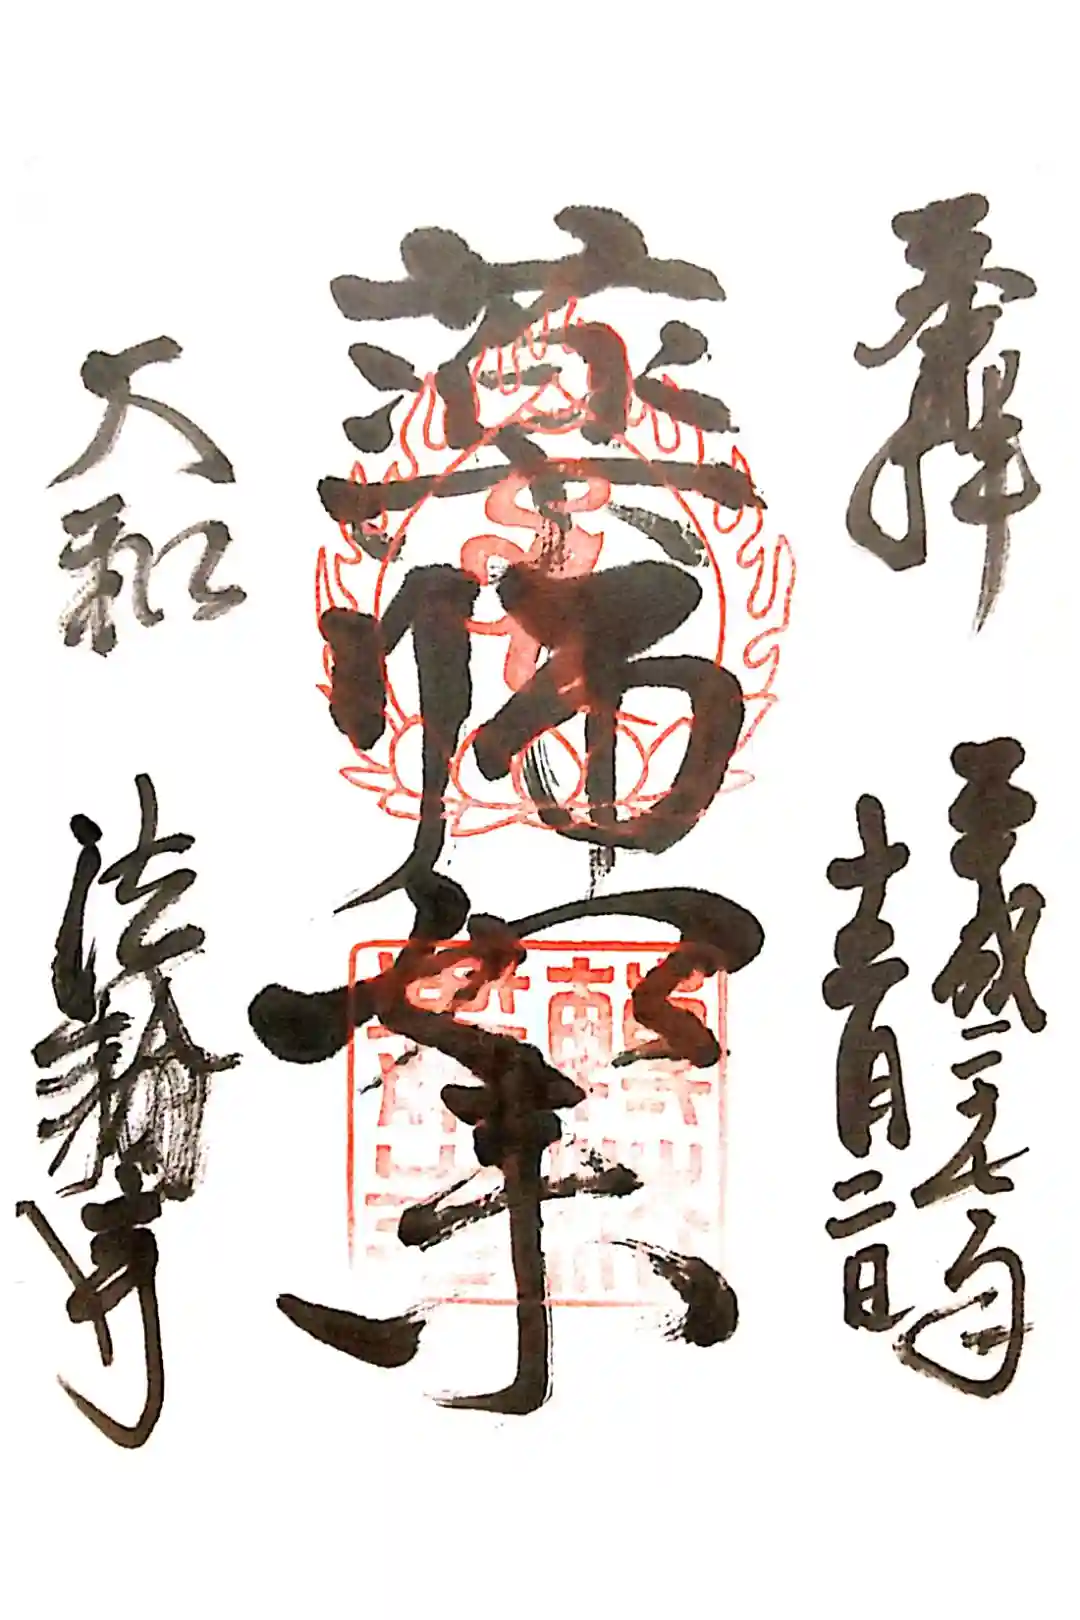 奉拝
平成二九年
十二月二日
薬師如来
大和
法輪寺